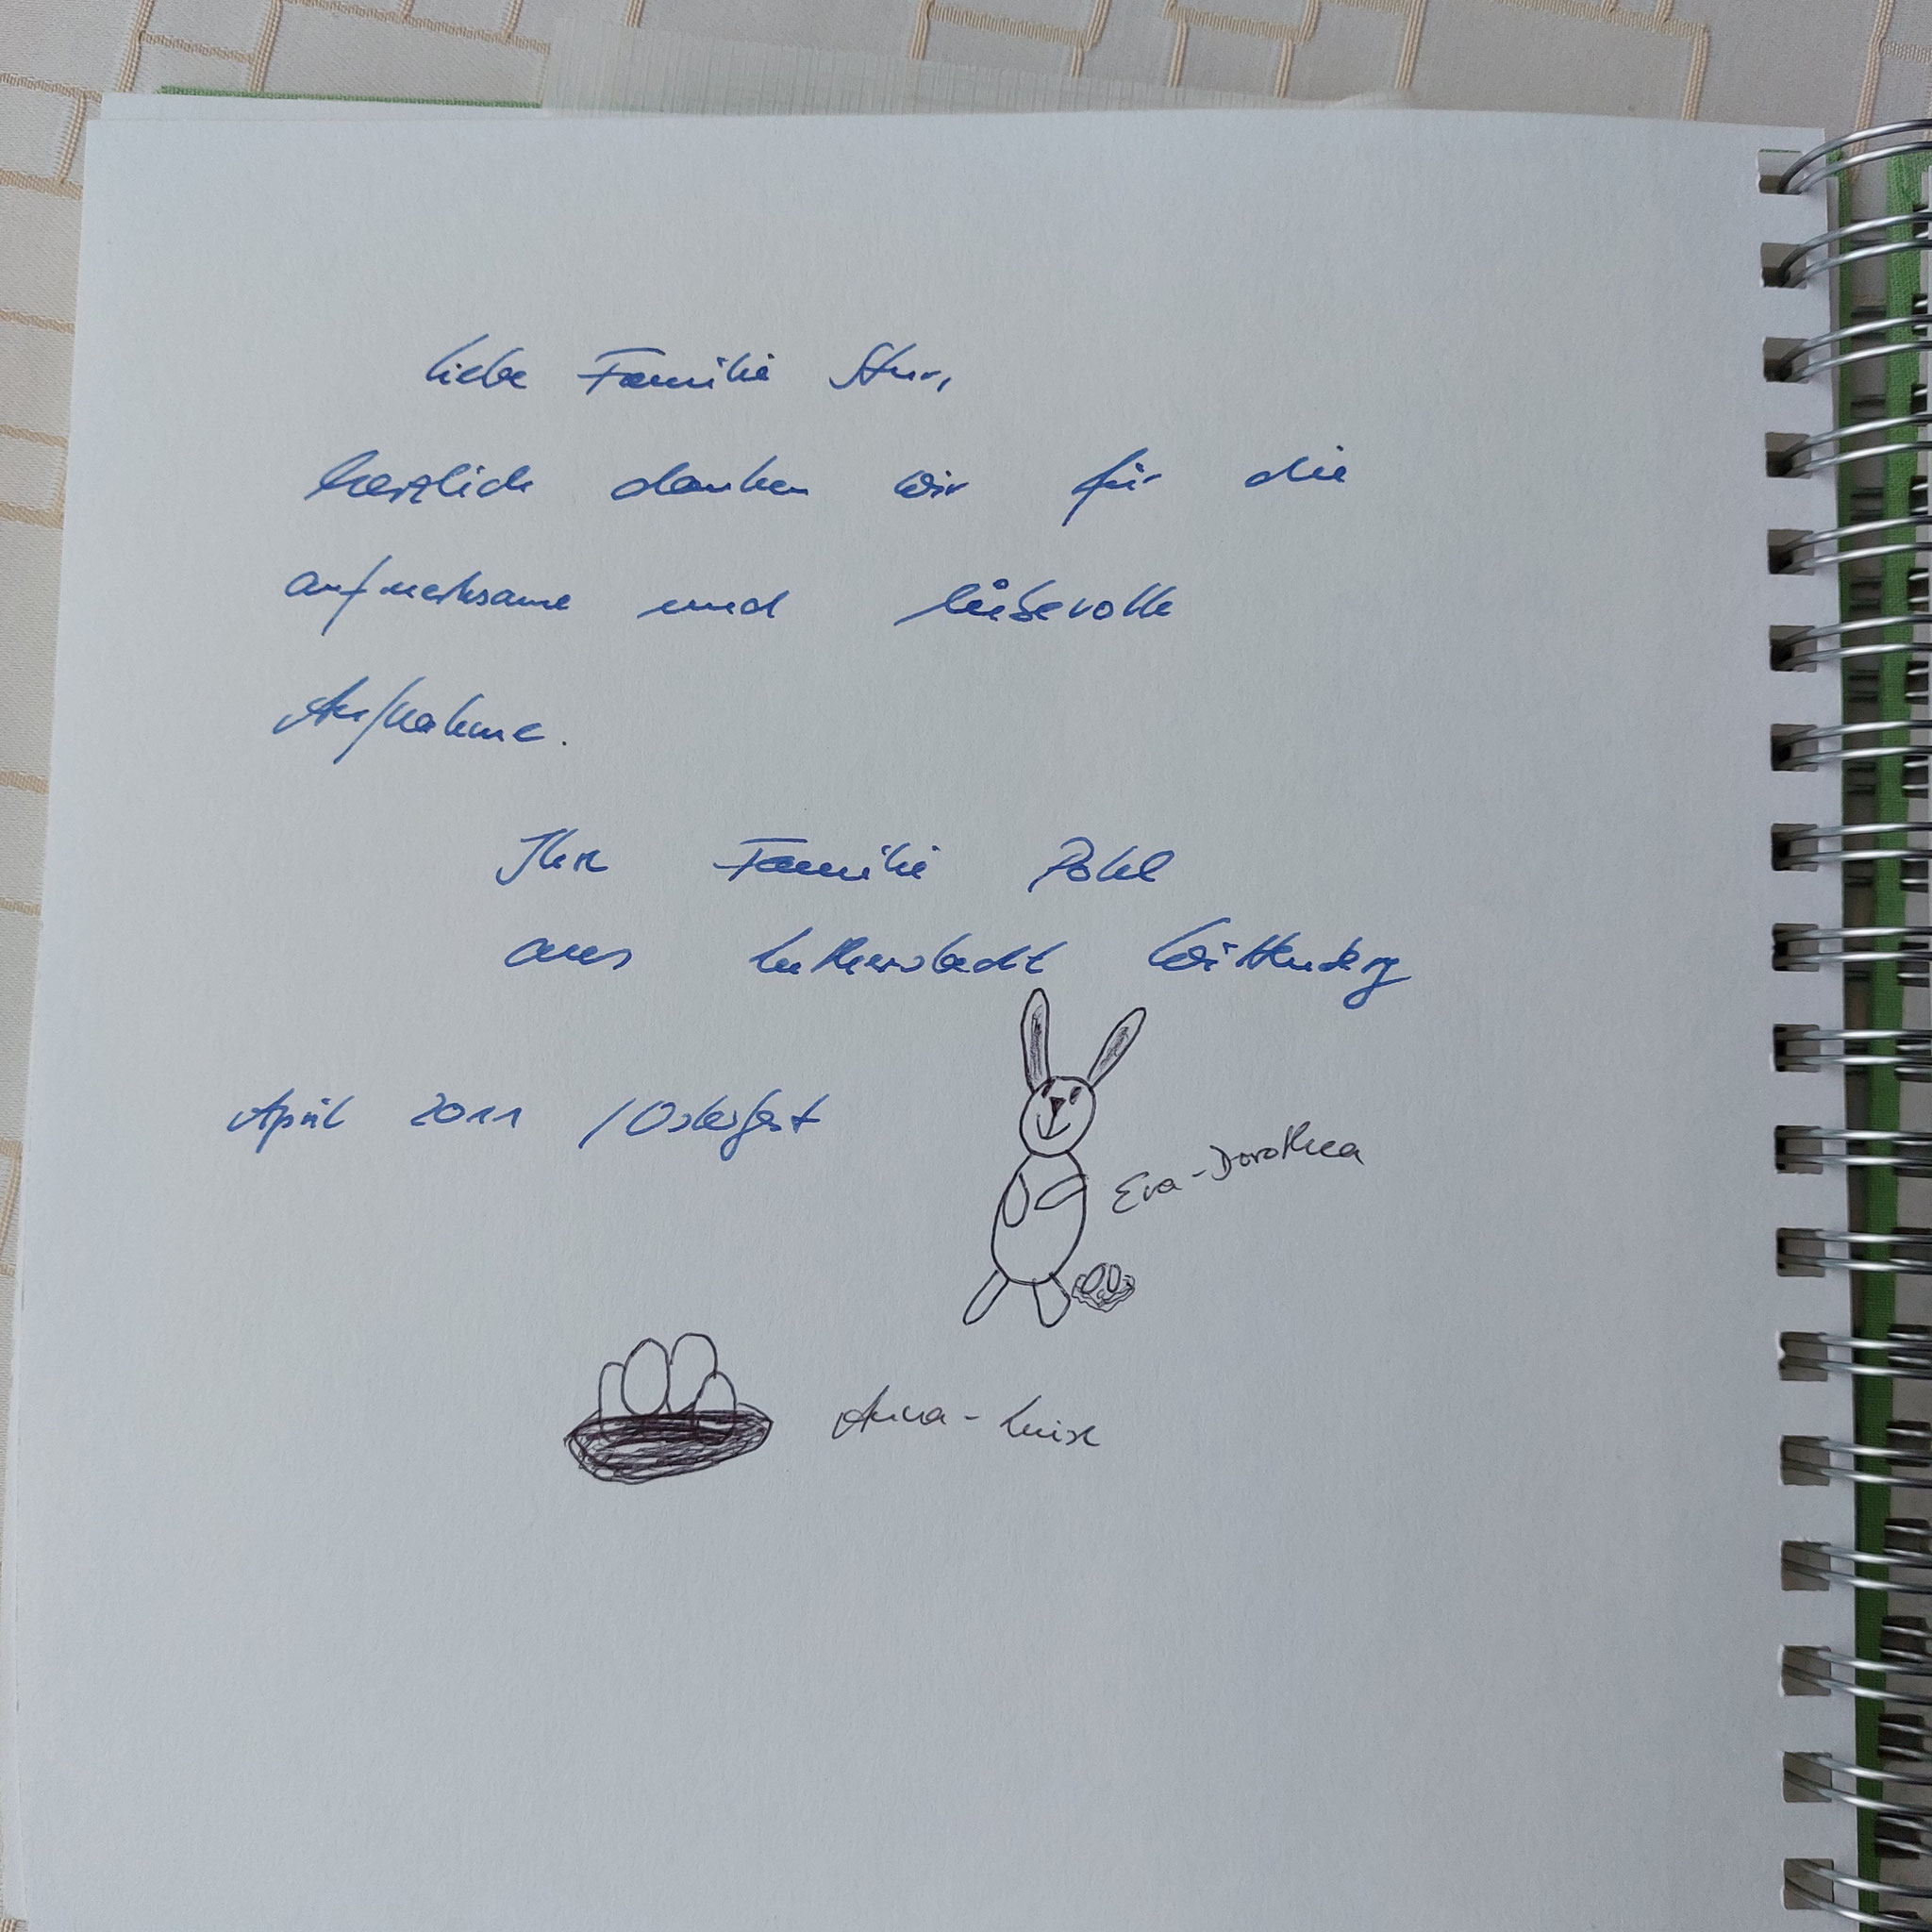 Liebe Familie Stur,
herzlich danken wir für die
aufmerksame und liebevolle
Aufnahme.
Ihre Familie Pohl
aus Lutherstadt Wittenberg
April 2011 / Osterfest
Eva-Dorothea
Anna-Luise